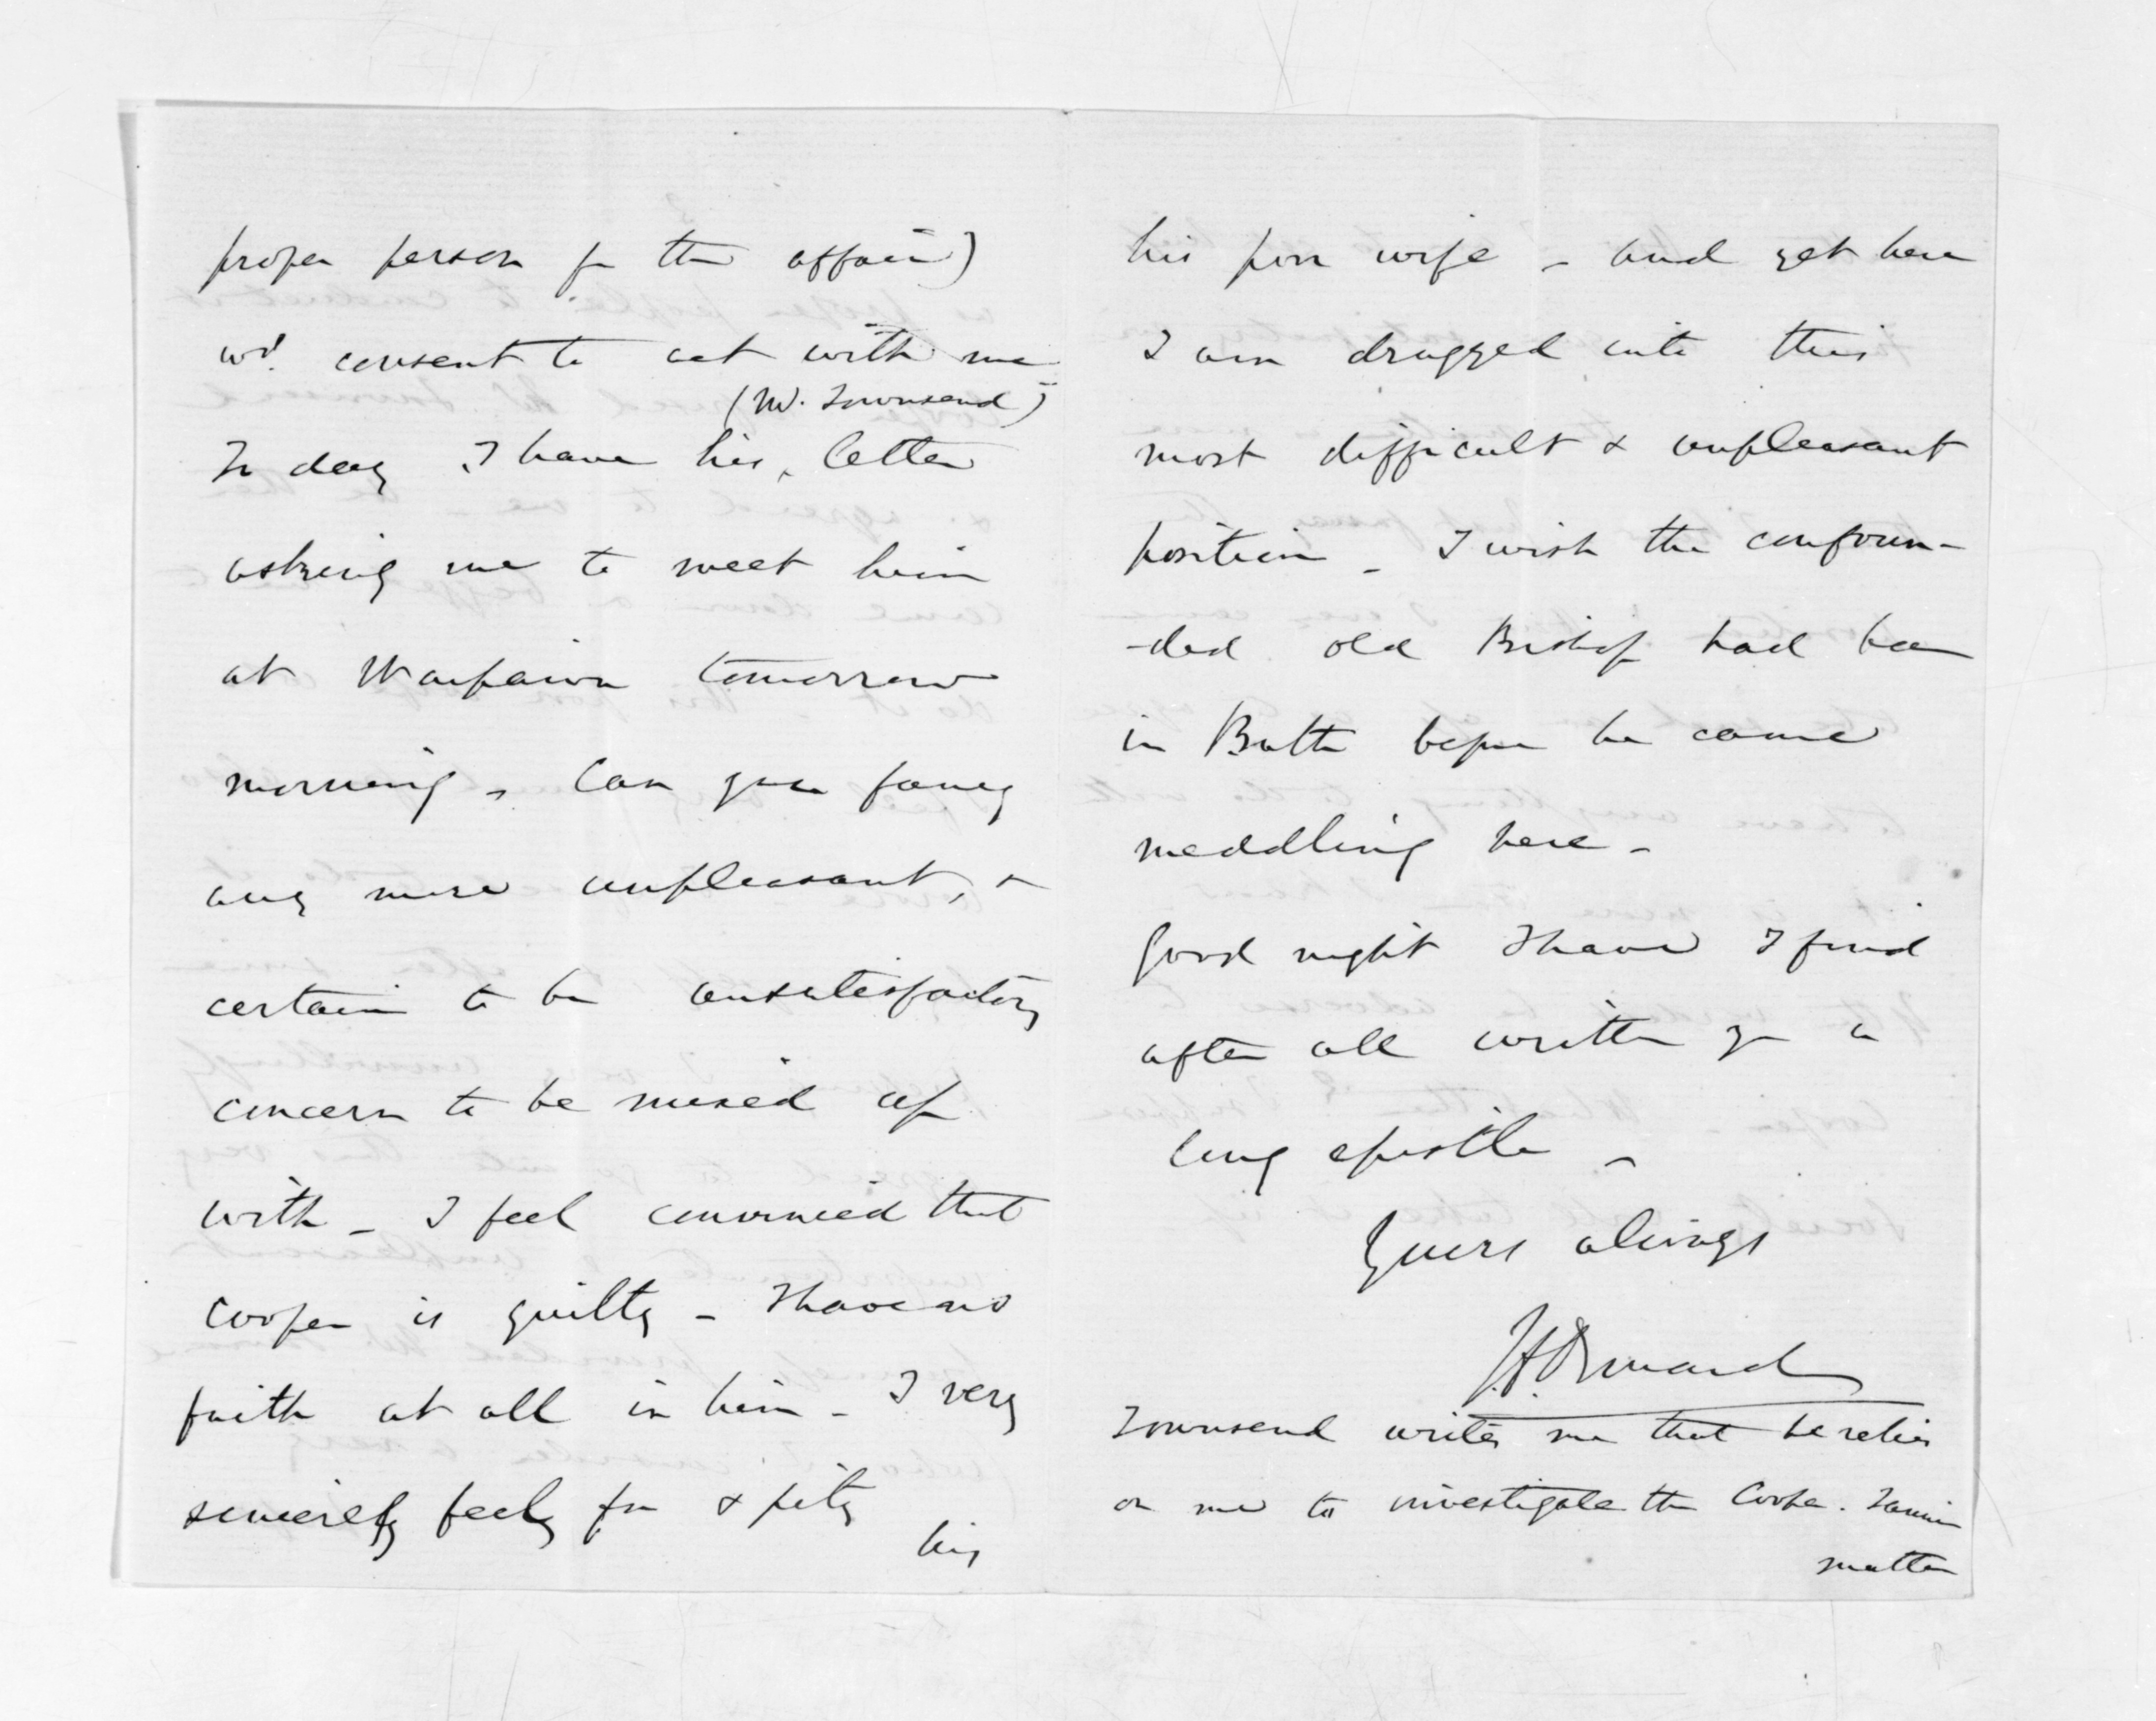 proper person for the affair)
wd. consent to act with me
(Mr. Townsend)
To day I have his ‸ letter
asking me to meet him
at Waipawa tomorrow
morning - Can you fancy
any more unpleasant, &
certain to be unsatisfactory
concern to be mixed up
with - I feel convinced that
Cooper is guilty - I have no
faith at all in him - I very
sincerely feel for & pity
his
his poor wife - and yet here
I am dragged into this
most difficult & unpleasant
position - I wish the confoun-
-ded old Bishop had been
in Bath before he came
meddling here -
Good night I have I find
after all written you a
long epistle -
Yours always
J.D. Ormond
Townsend writes me that he relies
on me to investigate the Cooper.
matter